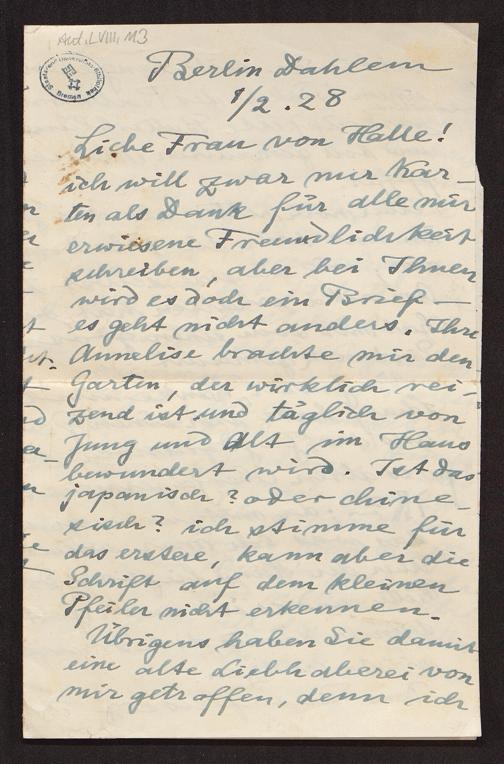 Aut. LVIII, 113
Berlin Dahlem
1/2.28
Liebe Frau von Halle!
ich will zwar nur Kar-
ten als Dank für alle mir
erwiesene Freundlichkeit
schreiben, aber bei Ihnen
wird es doch ein Brief —
es geht nicht anders. Ihre
Annelise brachte mir den
Garten, der wirklich rei-
zend ist und täglich von
Jung und Alt im Haus
bewundert wird. Ist das
japanisch? oder chine-
sisch? ich stimme für
das erstere, kann aber die
Schrift auf dem kleinen
Pfeiler nicht erkennen.
Übrigens haben Sie damit
eine alte Liebhaberei von
mir getroffen, denn ich